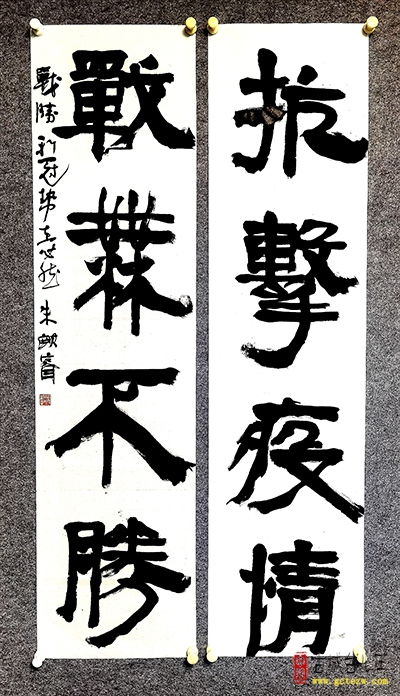 抗擊疫情
戰無不勝
戰勝新冠勢在必然 朱
www.gctezw.com